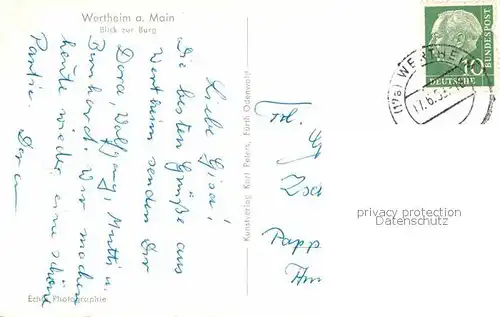 Wertheim a. Main
Blick zur Burg
Liebe Gisa!
Die besten Grüße aus
Wertheim senden Dir
Dora, Wolfgang, Mutti u.
Burkhard. Wir machen
heute wieder eine schöne
Partie. Dora
Echte Photographie
Kunstverlag Karl Peters, Fürth Odenwald
DEUTSCHE
BUNDESPOST
10
(17a) WERTHEIM
17.6.
Frl.
Zsch
Papp
privacy protection
Datenschutz